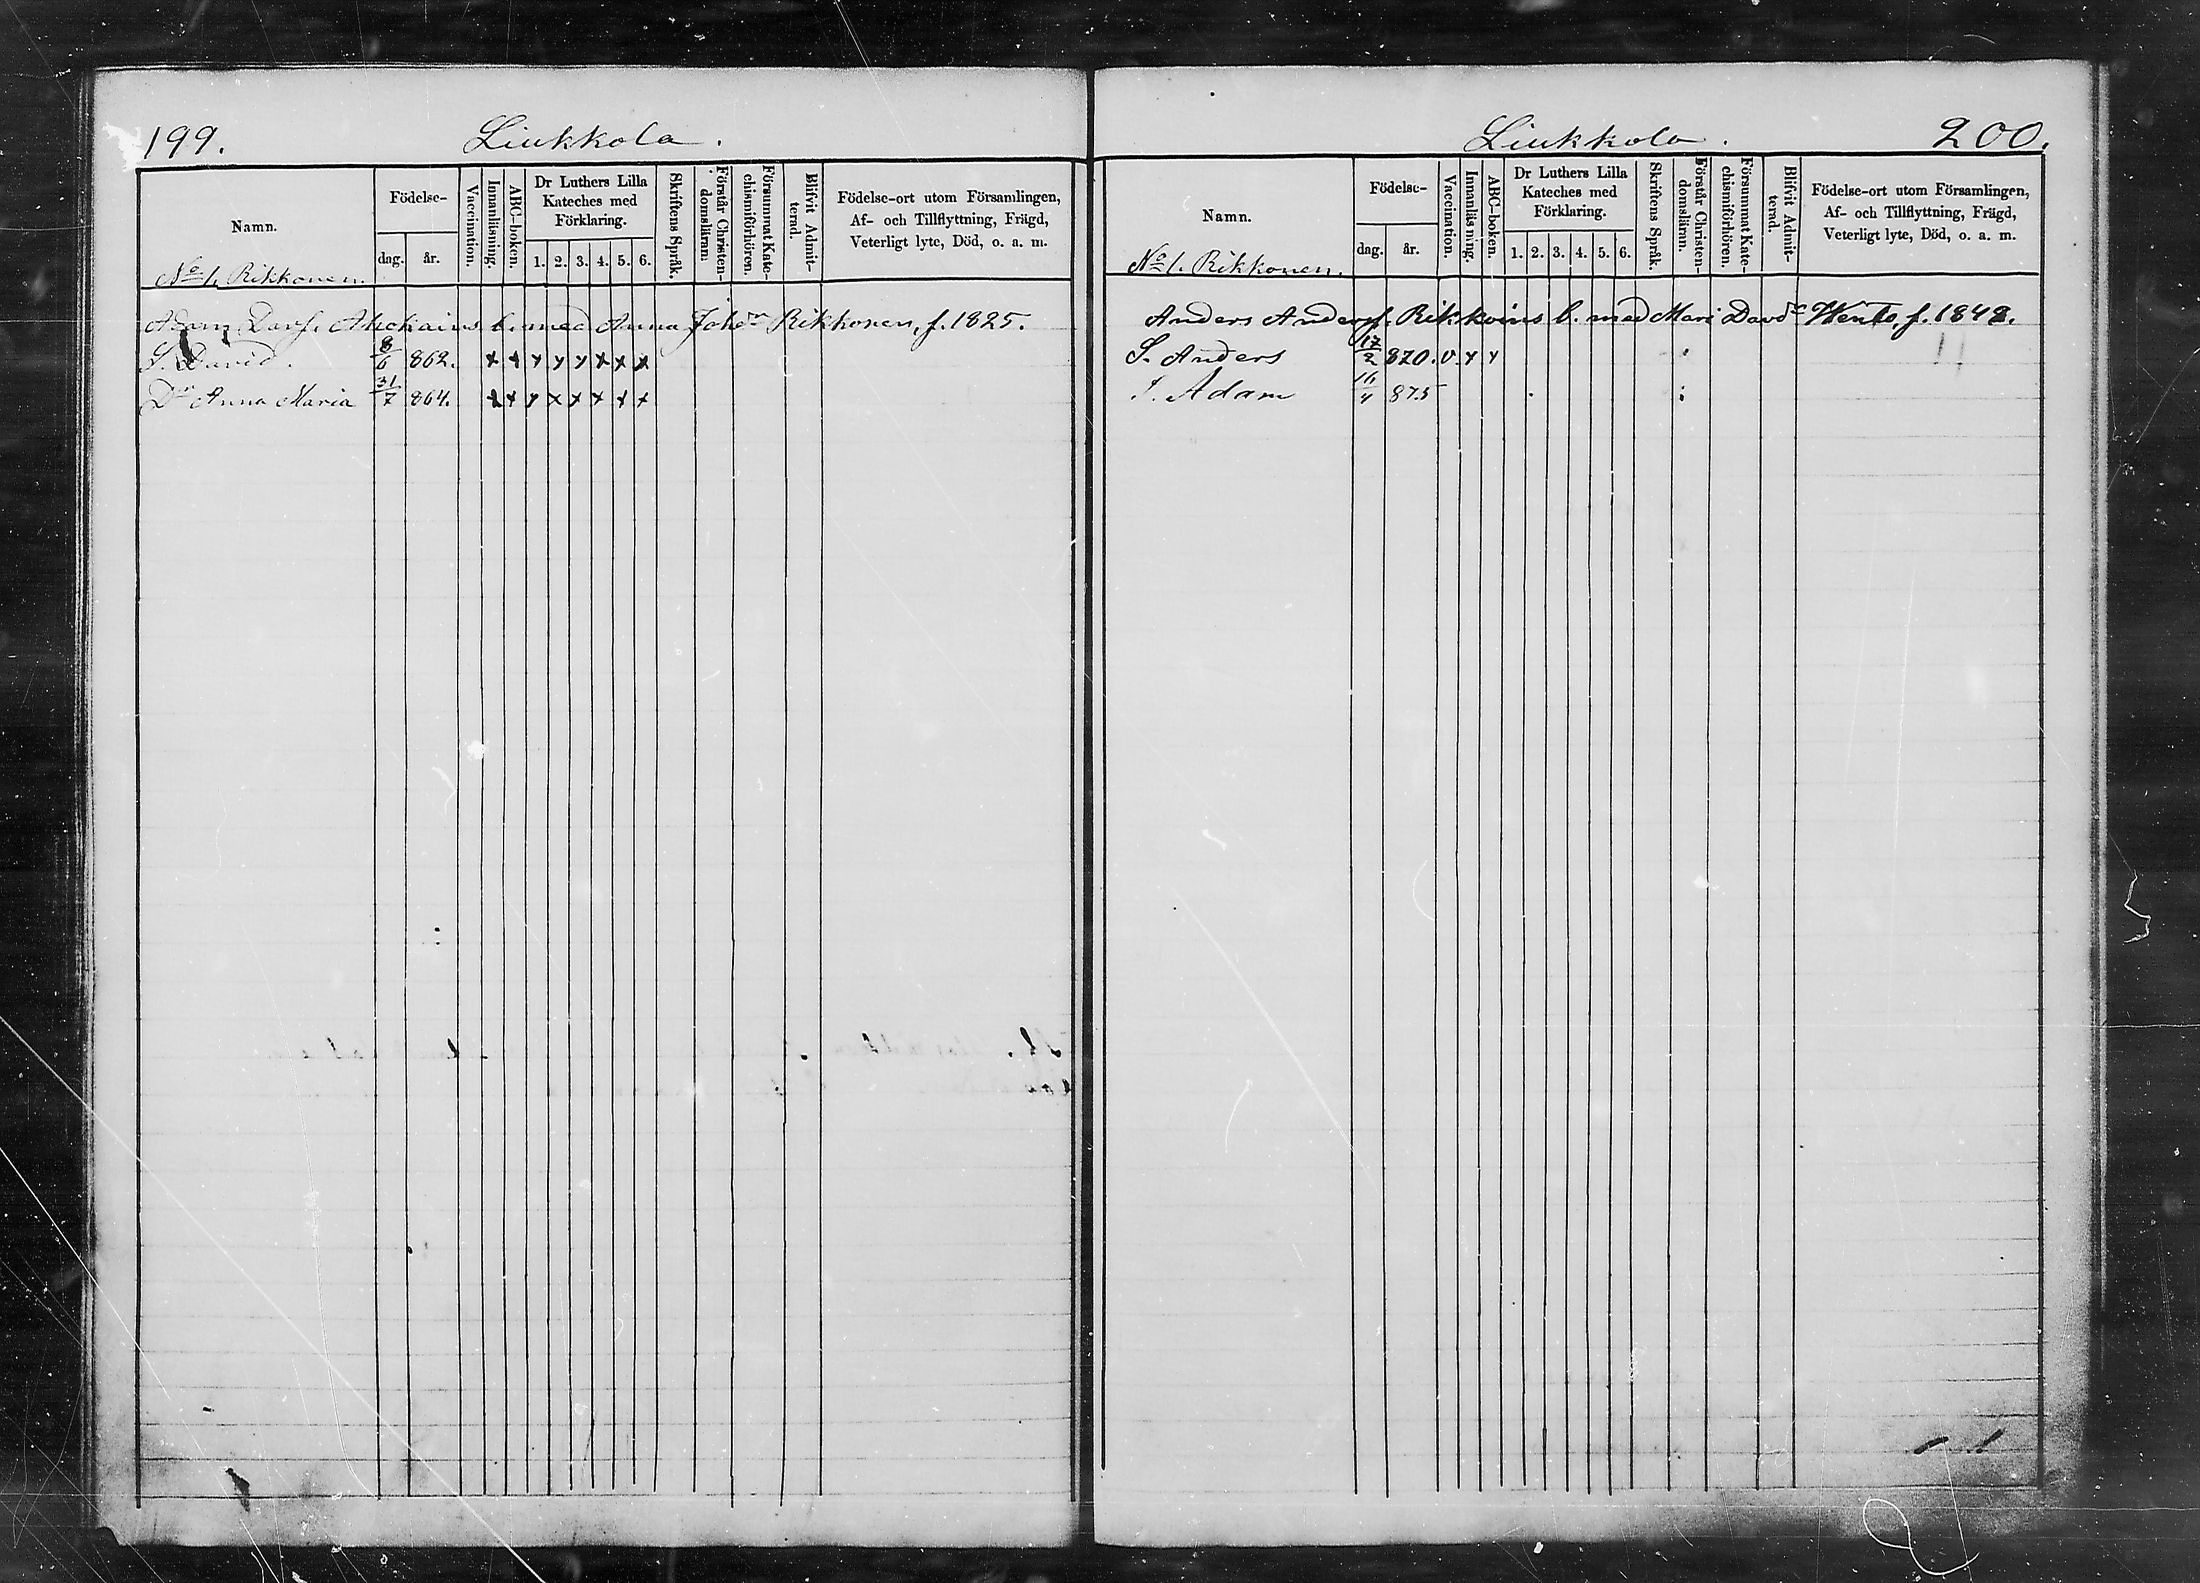 199. Liukkola.
Namn.
Födelse-
dag. år.
Vaccination.
Innanläsning.
ABC-boken.
Dr Luthers Lilla Kateches med Förklaring.
1. 2. 3. 4. 5. 6.
Skriftens Språk.
Förstår Christendomsläran.
Försummat Katechismiförhören.
Blifvit Admitterad.
Födelse-ort utom Församlingen,
Af- och Tillflyttning, Frägd,
Veterligt lyte, Död, o. a. m.
No 1. Rikkonen.
Adam Davs. b. med Anna Johsdr Rikkonen, f. 1825.
S. David. 8/6 862. x x x x x x x x
Dr Anna Maria 31/7 864. x x x x x x x x
Liukkola. 200.
Namn.
Födelse-
dag. år.
Vaccination.
Innanläsning.
ABC-boken.
Dr Luthers Lilla Kateches med Förklaring.
1. 2. 3. 4. 5. 6.
Skriftens Språk.
Förstår Christendomsläran.
Försummat Katechismiförhören.
Blifvit Admitterad.
Födelse-ort utom Församlingen,
Af- och Tillflyttning, Frägd,
Veterligt lyte, Död, o. a. m.
No 1. Rikkonen.
Anders Anderss. Rikkoins b. med Mari Davdr Wento, f. 1848.
S. Anders 17/2 870. v. x x
S. Adam 16/4 875